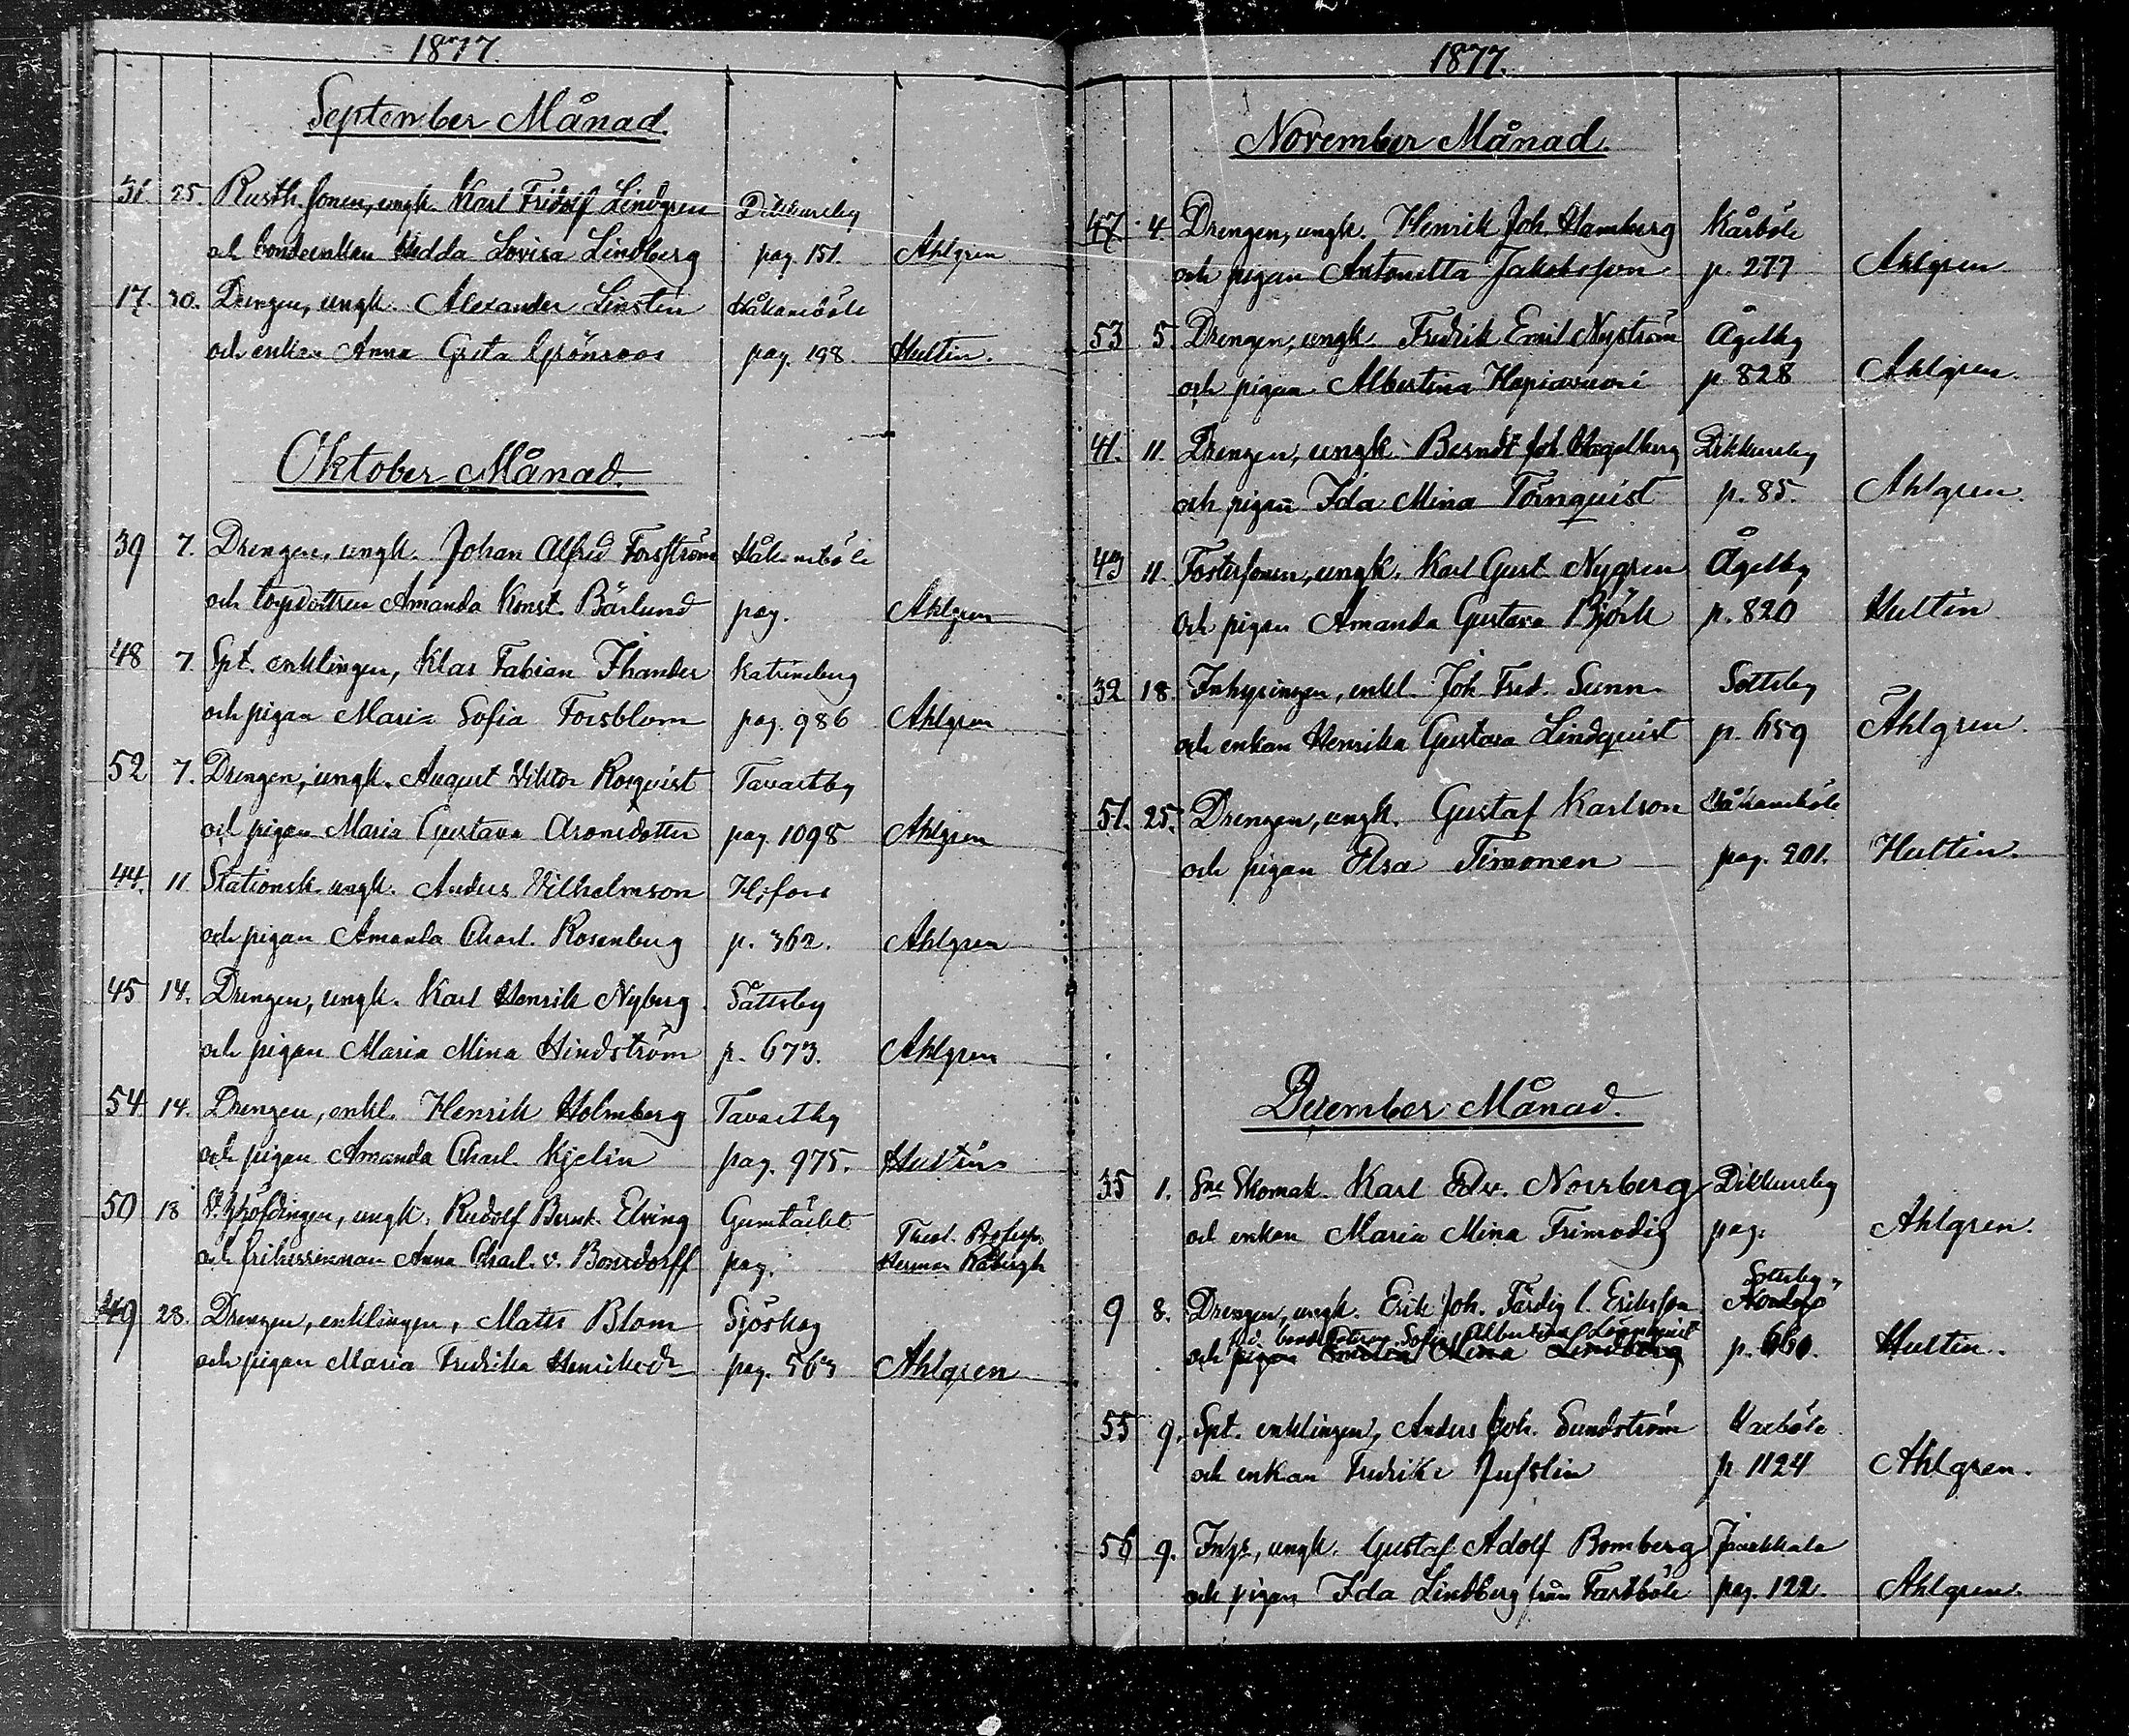 1877.
September Månad.
31. 25. Rusth. sonen, ungk. Karl Fridolf Lindgren Dikkursby
och bondeenkan Hedda Lovisa Lindberg pag. 151. Ahlgren
17. 30. Drengen, ungk. Alexander Linstén Håkansböle
och enkan Anna Greta Grönroos pag. 198. Hultin.
Oktober Månad.
39 7. Drengen, ungk. Johan Alfred Forsström Håkansböle
och torpdottren Amanda Konst. Bärlund pag. Ahlgren
48 7. Spt. enklingen, Klas Fabian Thander Katrineberg
och pigan Maria Sofia Forsblom pag. 986 Ahlgren
52 7. Drengen, ungk. August Viktor Roqvist Tavastby
och pigan Maria Gustava Aronsdotter pag. 1098 Ahlgren
44. 11 Stationsk. ungk. Anders Vilhelmson H:fors
och pigan Amanda Charl. Rosenberg p. 362. Ahlgren
45 14. Drengen, ungk. Karl Henrik Nyberg Sottersby
och pigan Maria Mina Hindström p. 673. Ahlgren
54 14. Drengen, enkl. Henrik Holmberg Tavastby
och pigan Amanda Charl. Kjelin pag. 975. Hultin
50 18 V. häfdingen, ungk. Rudolf Bernh. Elving Gumtäckt Theol. Professor
och frikerrinnan Anna Charl. v. Bonsdorff pag. Herman Råbergh
49 28. Drengen, enklingen, Matts Blom Sjöskog
och pigan Maria Fredrika Henriksdr pag. 563 Ahlgren
1877.
November Månad.
47. 4. Drengen, ungk. Henrik Joh. Hamberg Kårböle
och pigan Antonetta Jakobsson p. 277 Ahlgren
53 5. Drengen, ungk. Fredrik Emil Nyström Ågelby
och pigan Albertina Hapiavuori p. 828 Ahlgren.
41. 11. Drengen, ungk. Berndt Joh. Hagelberg Dikkursby
och pigan Ida Mina Törnquist p. 85. Ahlgren.
43 11. Fostersonen, ungk. Karl Gust. Nygren Ågelby
och pigan Amanda Gustava Björk p. 820 Hultin
32 18. Inhysingen, enkl. Joh. Fred. Sunn Sottsby
och enkan Henrika Gustava Lindquist p. 659 Ahlgren.
51. 25. Drengen, ungk. Gustaf Karlson Håkansböle
och pigan Elsa Timonen pag. 201. Hultin.
December Månad.
35 1. Sne Skomak. Karl Edv. Norrberg Dikkursby
och enkan Maria Mina Frimodig pag. Ahlgren.
9 8. Drengen, ungk. Erik Joh. Färdig l. Eriksson Sottsby
bond. Sofia Albertina Lönnqvist
och pigan Mina Lindberg p. 660. Hultin.
55 9. Spt. enklingen, Anders Joh. Sundström Varböle
och enkan Fredrika Jusslin p. 1124 Ahlgren.
56 9. Inhys, ungk. Gustaf Adolf Bomberg Janakkala
och pigan Ida Lindberg från Fastböle pag. 122. Ahlgren.